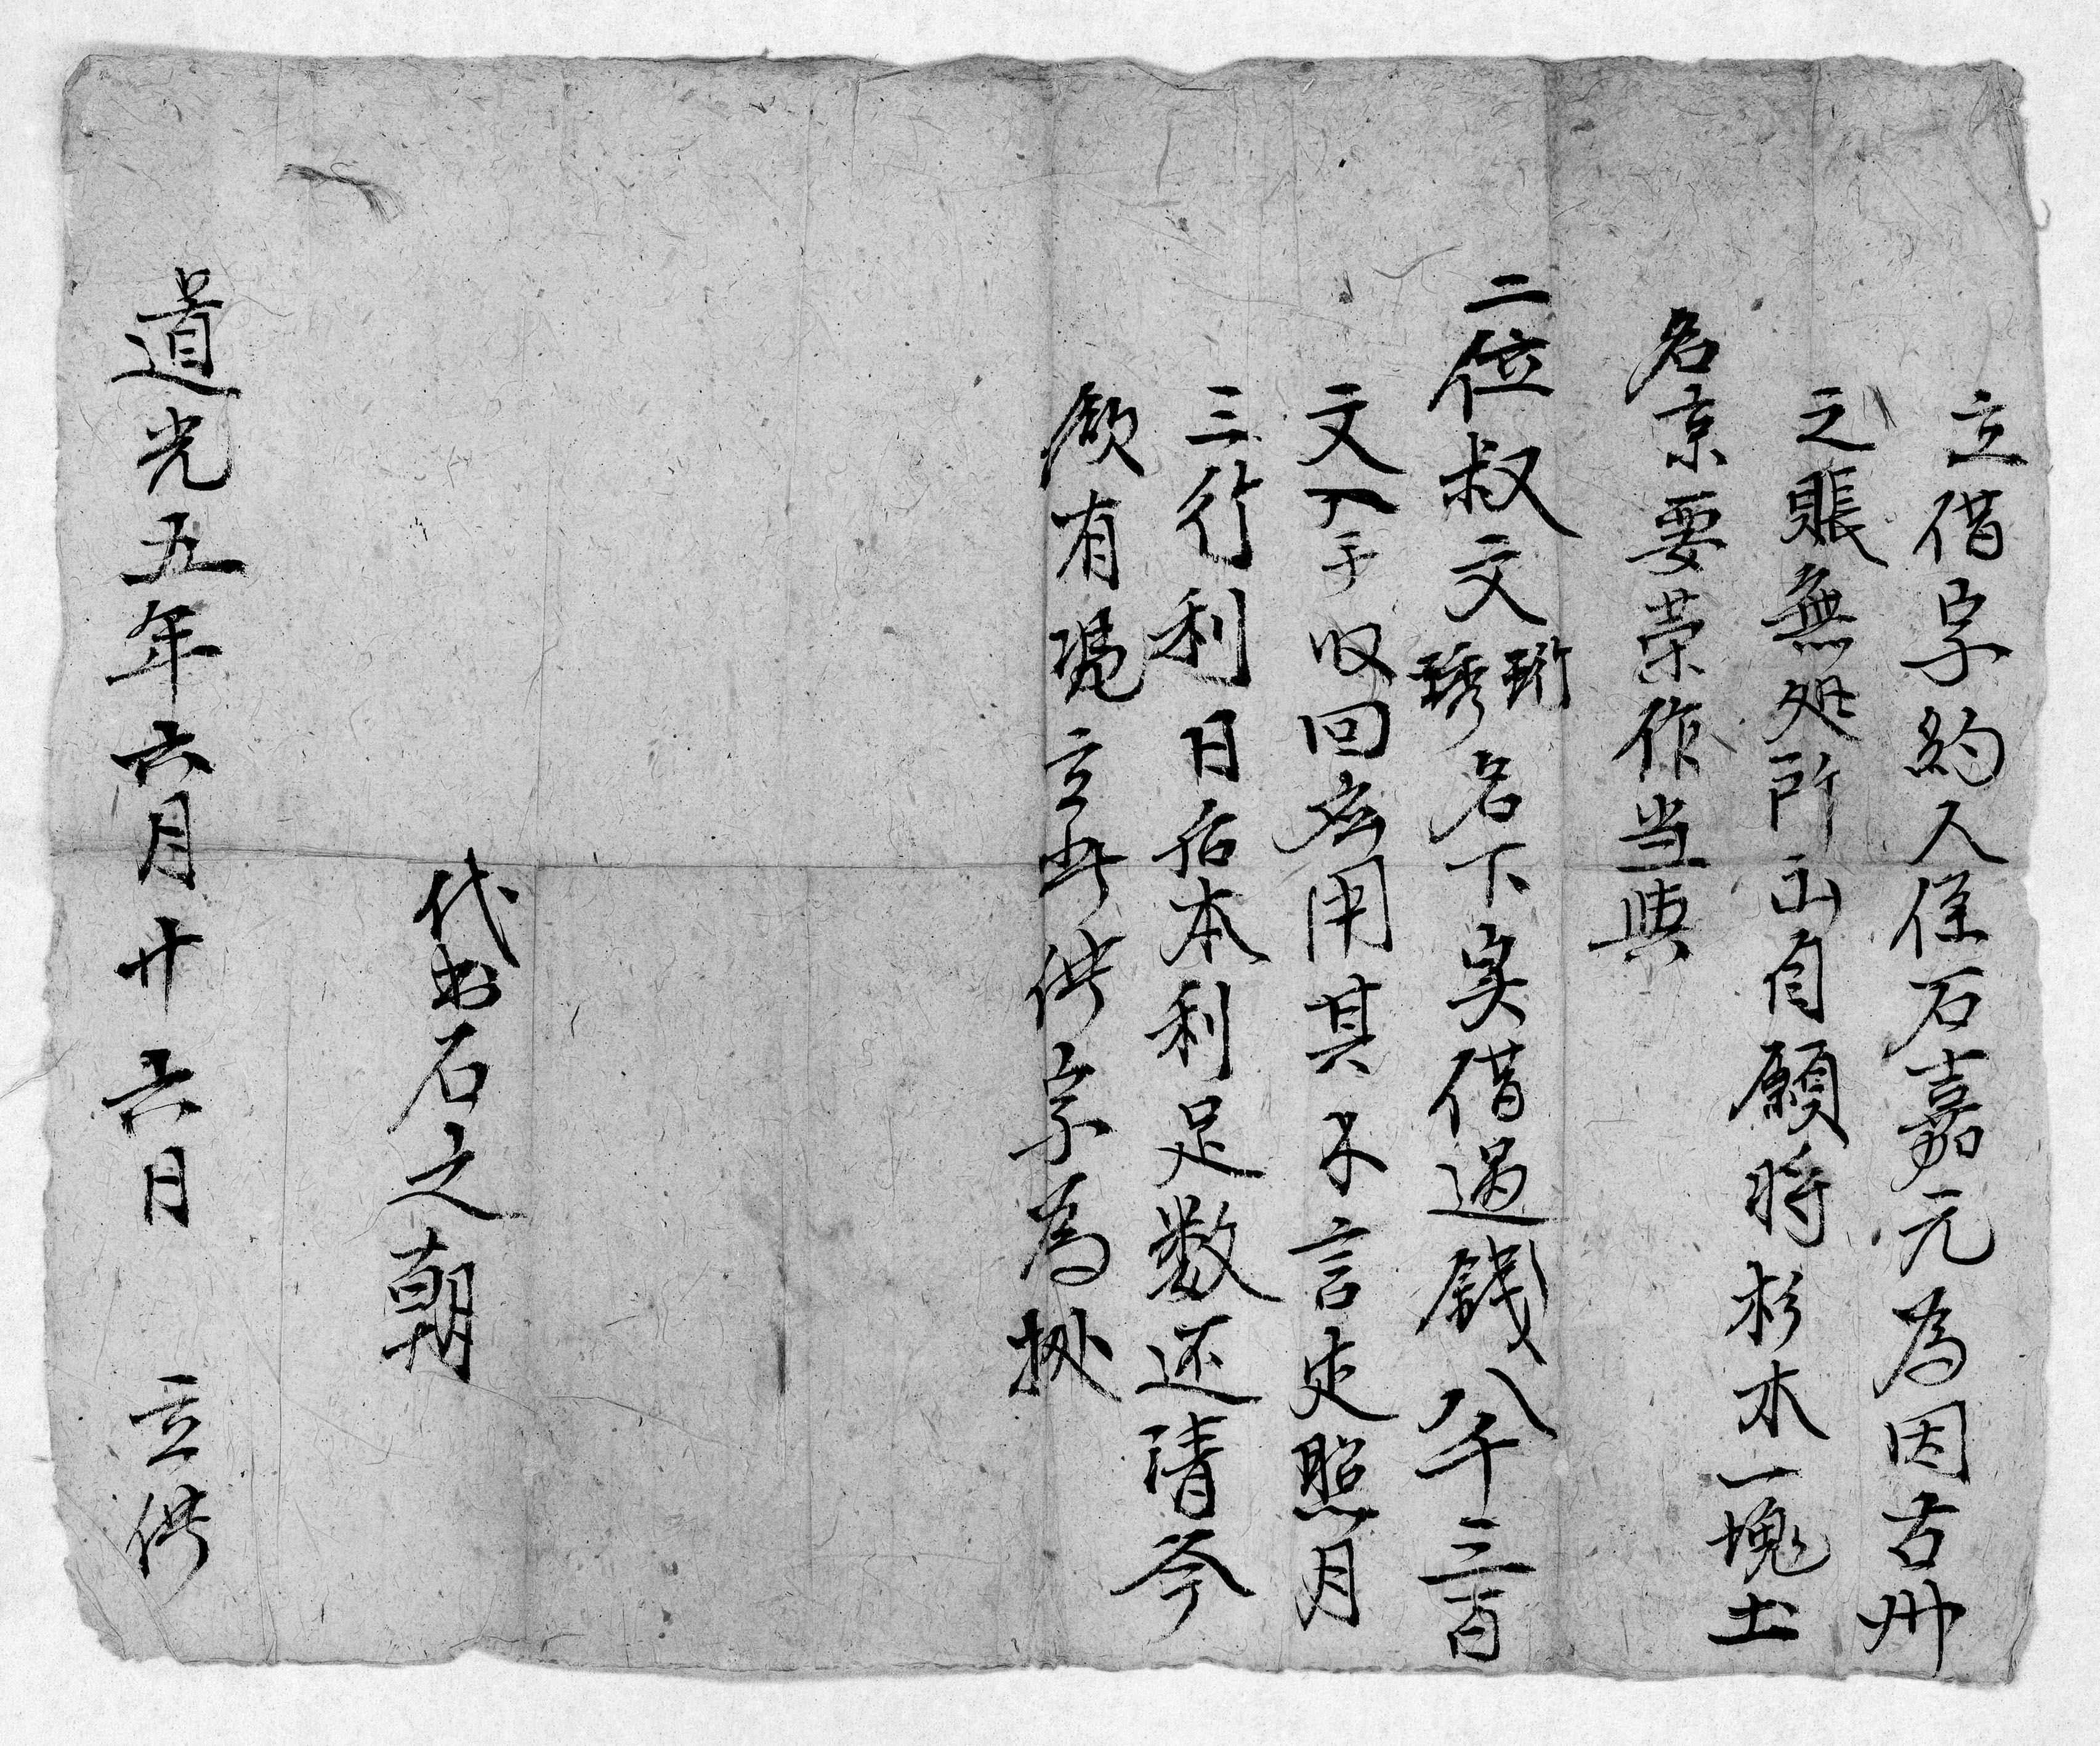 立借字約人侄石嘉元為因古州
之賬無処所出自願將杉木一塊土
名京要荣作当與
二位叔文珩琇名下实借過錢八千三百
文入手収回应用其不言定照月
三行利日后本利足数还清今
欲有凴立此借字為拠
代书石之朝
道光五年六月廿六日 立借